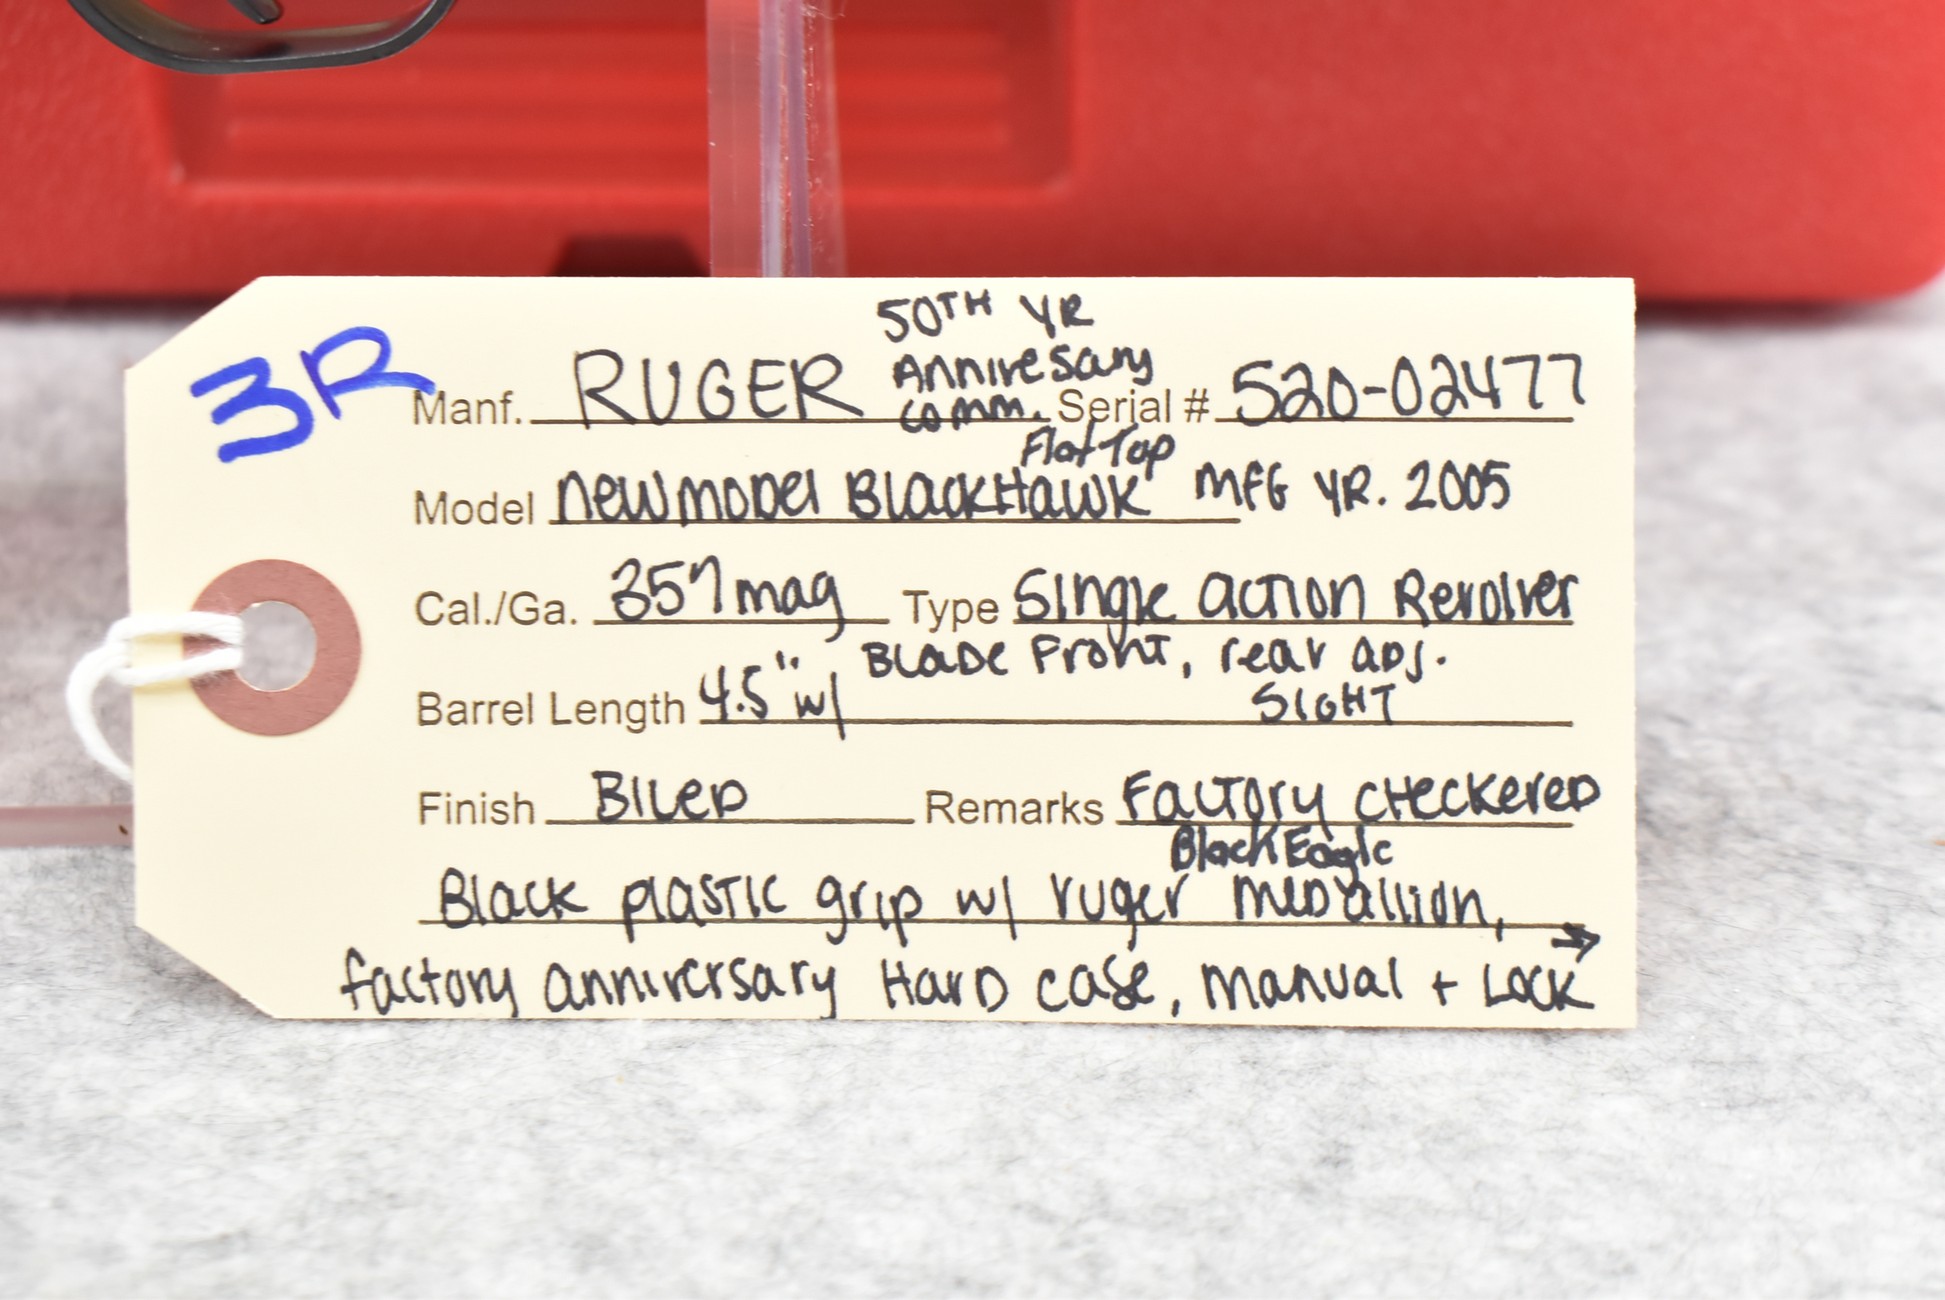 3R
50TH YR
Anniversary
Manf. RUGER comm. Serial # 520-02477
Flat Top
Model new model BlackHawk MFG YR. 2005
Cal./Ga. 357 mag Type Single action Revolver
Blade Front, rear adj.
Barrel Length 4.5" w/ SIGHT
Finish Blued Remarks Factory CHeckered
Black Eagle
Black plastic grip w/ ruger medallion,
→
factory anniversary Hard case, manual + Lock